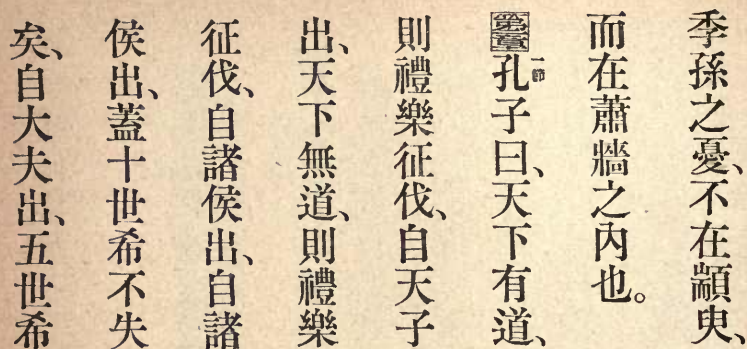 季孫之憂、不在顓臾、
而在蕭牆之內也。
第二章 一節 孔子曰、天下有道、
則禮樂征伐、自天子
出、天下無道、則禮樂
征伐、自諸侯出、自諸
侯出、蓋十世希不失
矣、自大夫出、五世希